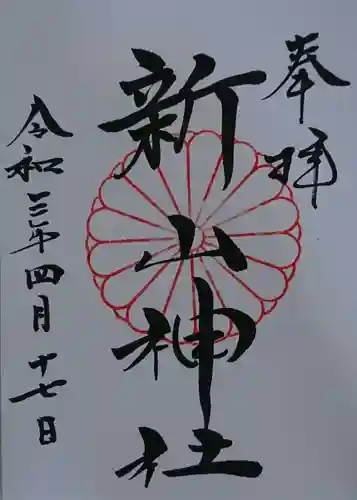 奉拝
新山神社
令和三年四月十七日